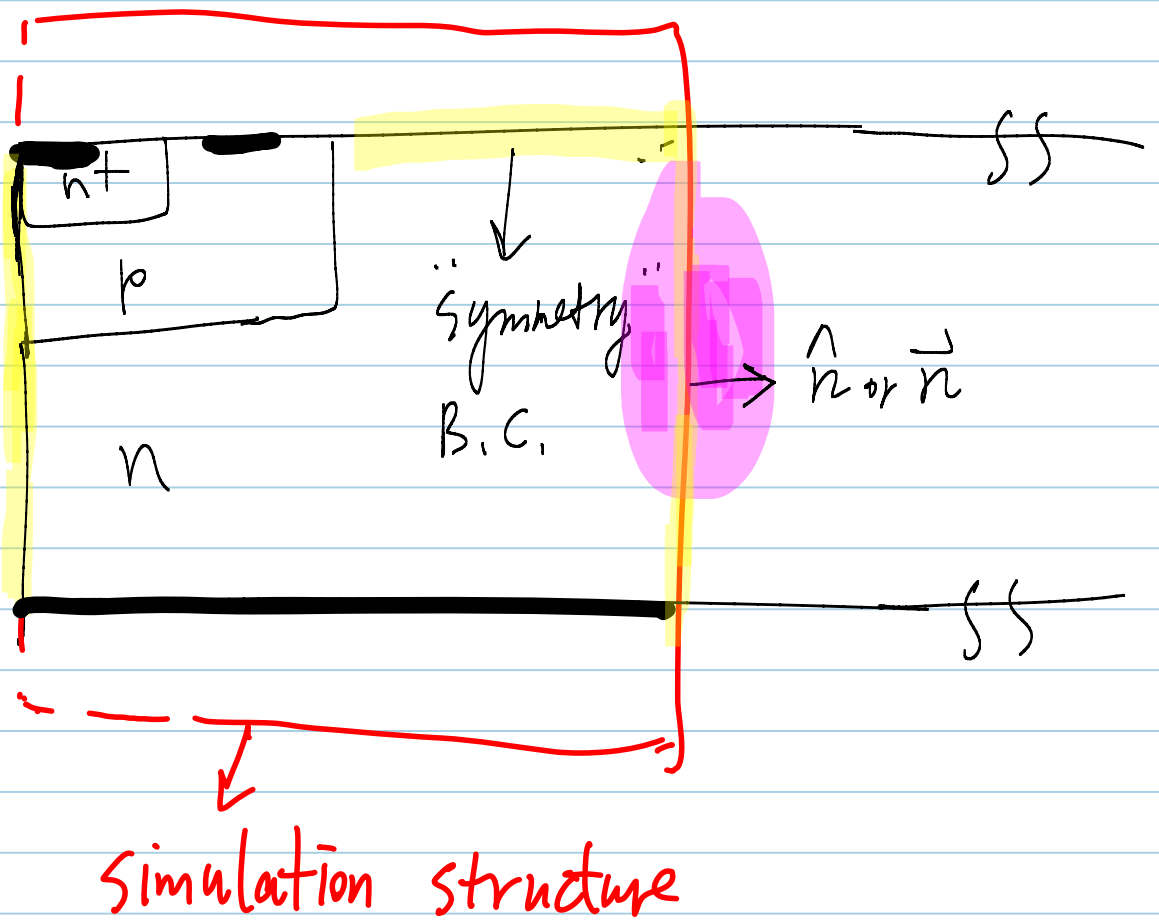 n+
p
"Symmetry"
B.C.
n̂ or n⃗
n
simulation structure